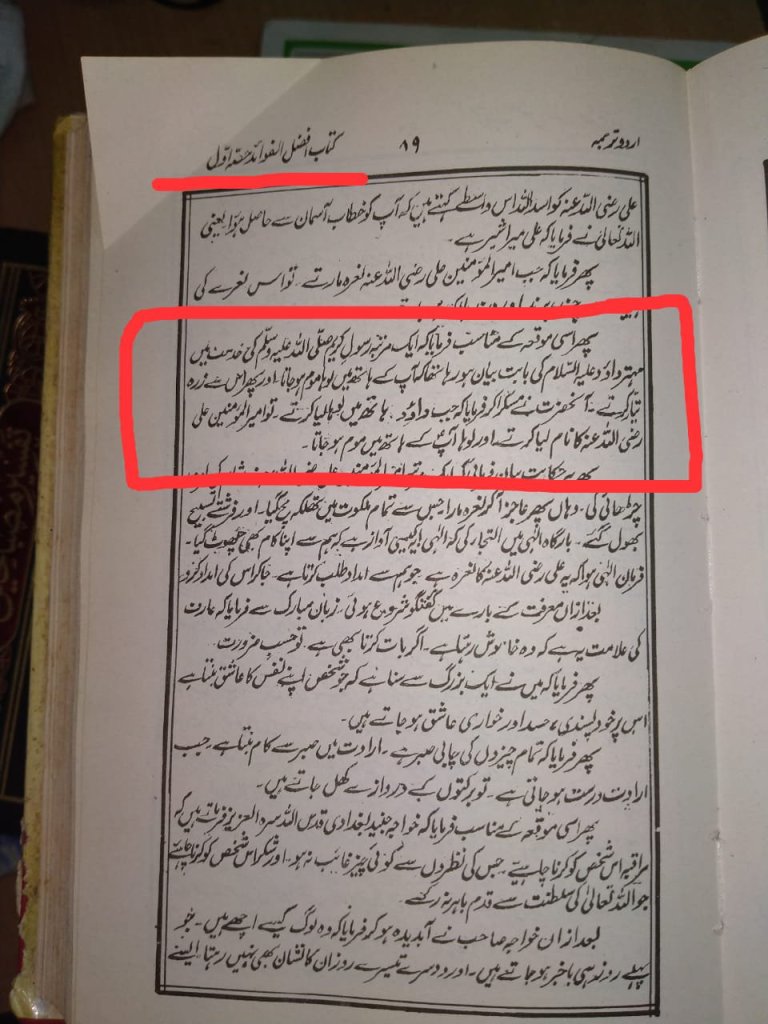 اردو ترجمہ
۸۹
کتاب افضل الفوائد حصہ اوّل
علی رضی اللہ عنہ کو اسد اللہ اس واسطے کہتے ہیں کہ آپ کو خطاب آسمان سے حاصل ہوا یعنی
اللہ تعالیٰ نے فرمایا کہ علی میرا شیر ہے۔
پھر فرمایا کہ جب امیر المؤمنین علی رضی اللہ عنہ نعرہ مارتے۔ تو اس نعرے کی
پھر اسی موقعہ کے مناسب فرمایا کہ ایک مرتبہ رسول کریم صلی اللہ علیہ وسلم کی خدمت میں
مہتر داؤد علیہ السلام کی بابت بیان ہو رہا تھا کہ آپ کے ہاتھ میں لوہا موم ہو جاتا۔ اور پھر اس سے زرہ
تیار کرتے۔ آنحضرت نے مسکرا کر فرمایا کہ جب داؤد ہاتھ میں لوہا لیا کرتے۔ تو امیر المؤمنین علی
رضی اللہ عنہ کا نام لیا کرتے۔ اور لوہا آپ کے ہاتھ میں موم ہو جاتا۔
پھر یہ حکایت بیان فرمائی کہ ایک
چڑھائی کی۔ وہاں پھر عاجز آکر نعرہ مارا جس سے تمام ملکوت میں تہلکہ مچ گیا۔ اور فرشتے تسبیح
بھول گئے۔ بارگاہ الٰہی میں التجا کی کہ الٰہی! یہ کیسی آواز ہے کہ ہم سے اپنا کام بھی چھوٹ گیا۔
فرمان الٰہی ہوا کہ یہ علی رضی اللہ عنہ کا نعرہ ہے جو ہم سے امداد طلب کرتا ہے۔ جا کر اس کی امداد کرو۔
بعد ازاں معرفت کے بارے میں گفتگو شروع ہوئی۔ زبان مبارک سے فرمایا کہ عارف
کی علامت یہ ہے کہ وہ خاموش رہتا ہے۔ اگر بات کرتا بھی ہے تو حسب ضرورت۔
پھر فرمایا کہ میں نے ایک بزرگ سے سنا ہے کہ جو شخص اپنے نفس کا عاشق بنتا ہے
اس پر خود پسندی، حسد اور خواری عاشق ہو جاتے ہیں۔
پھر فرمایا کہ تمام چیزوں کی چابی صبر ہے۔ ارادت میں صبر سے کام بنتا ہے۔ جب
ارادت درست ہو جاتی ہے۔ تو برکتوں کے دروازے کھل جاتے ہیں۔
پھر اسی موقعہ کے مناسب فرمایا کہ خواجہ جنید بغدادی قدس اللہ سرہ العزیز فرماتے ہیں کہ
مراقبہ اس شخص کو کرنا چاہیے۔ جس کی نظروں سے کوئی چیز غائب نہ ہو۔ اور شکر اس شخص کو کرنا چاہیے
جو اللہ تعالیٰ کی سلطنت سے قدم باہر نہ رکھے۔
بعد ازاں خواجہ صاحب نے آبدیدہ ہو کر فرمایا کہ وہ لوگ کیسے اچھے ہیں۔ جو
پہلے روز ہی باخبر ہو جاتے ہیں۔ اور دوسرے تیسرے روز ان کا نشان بھی نہیں رہتا۔ ایسے